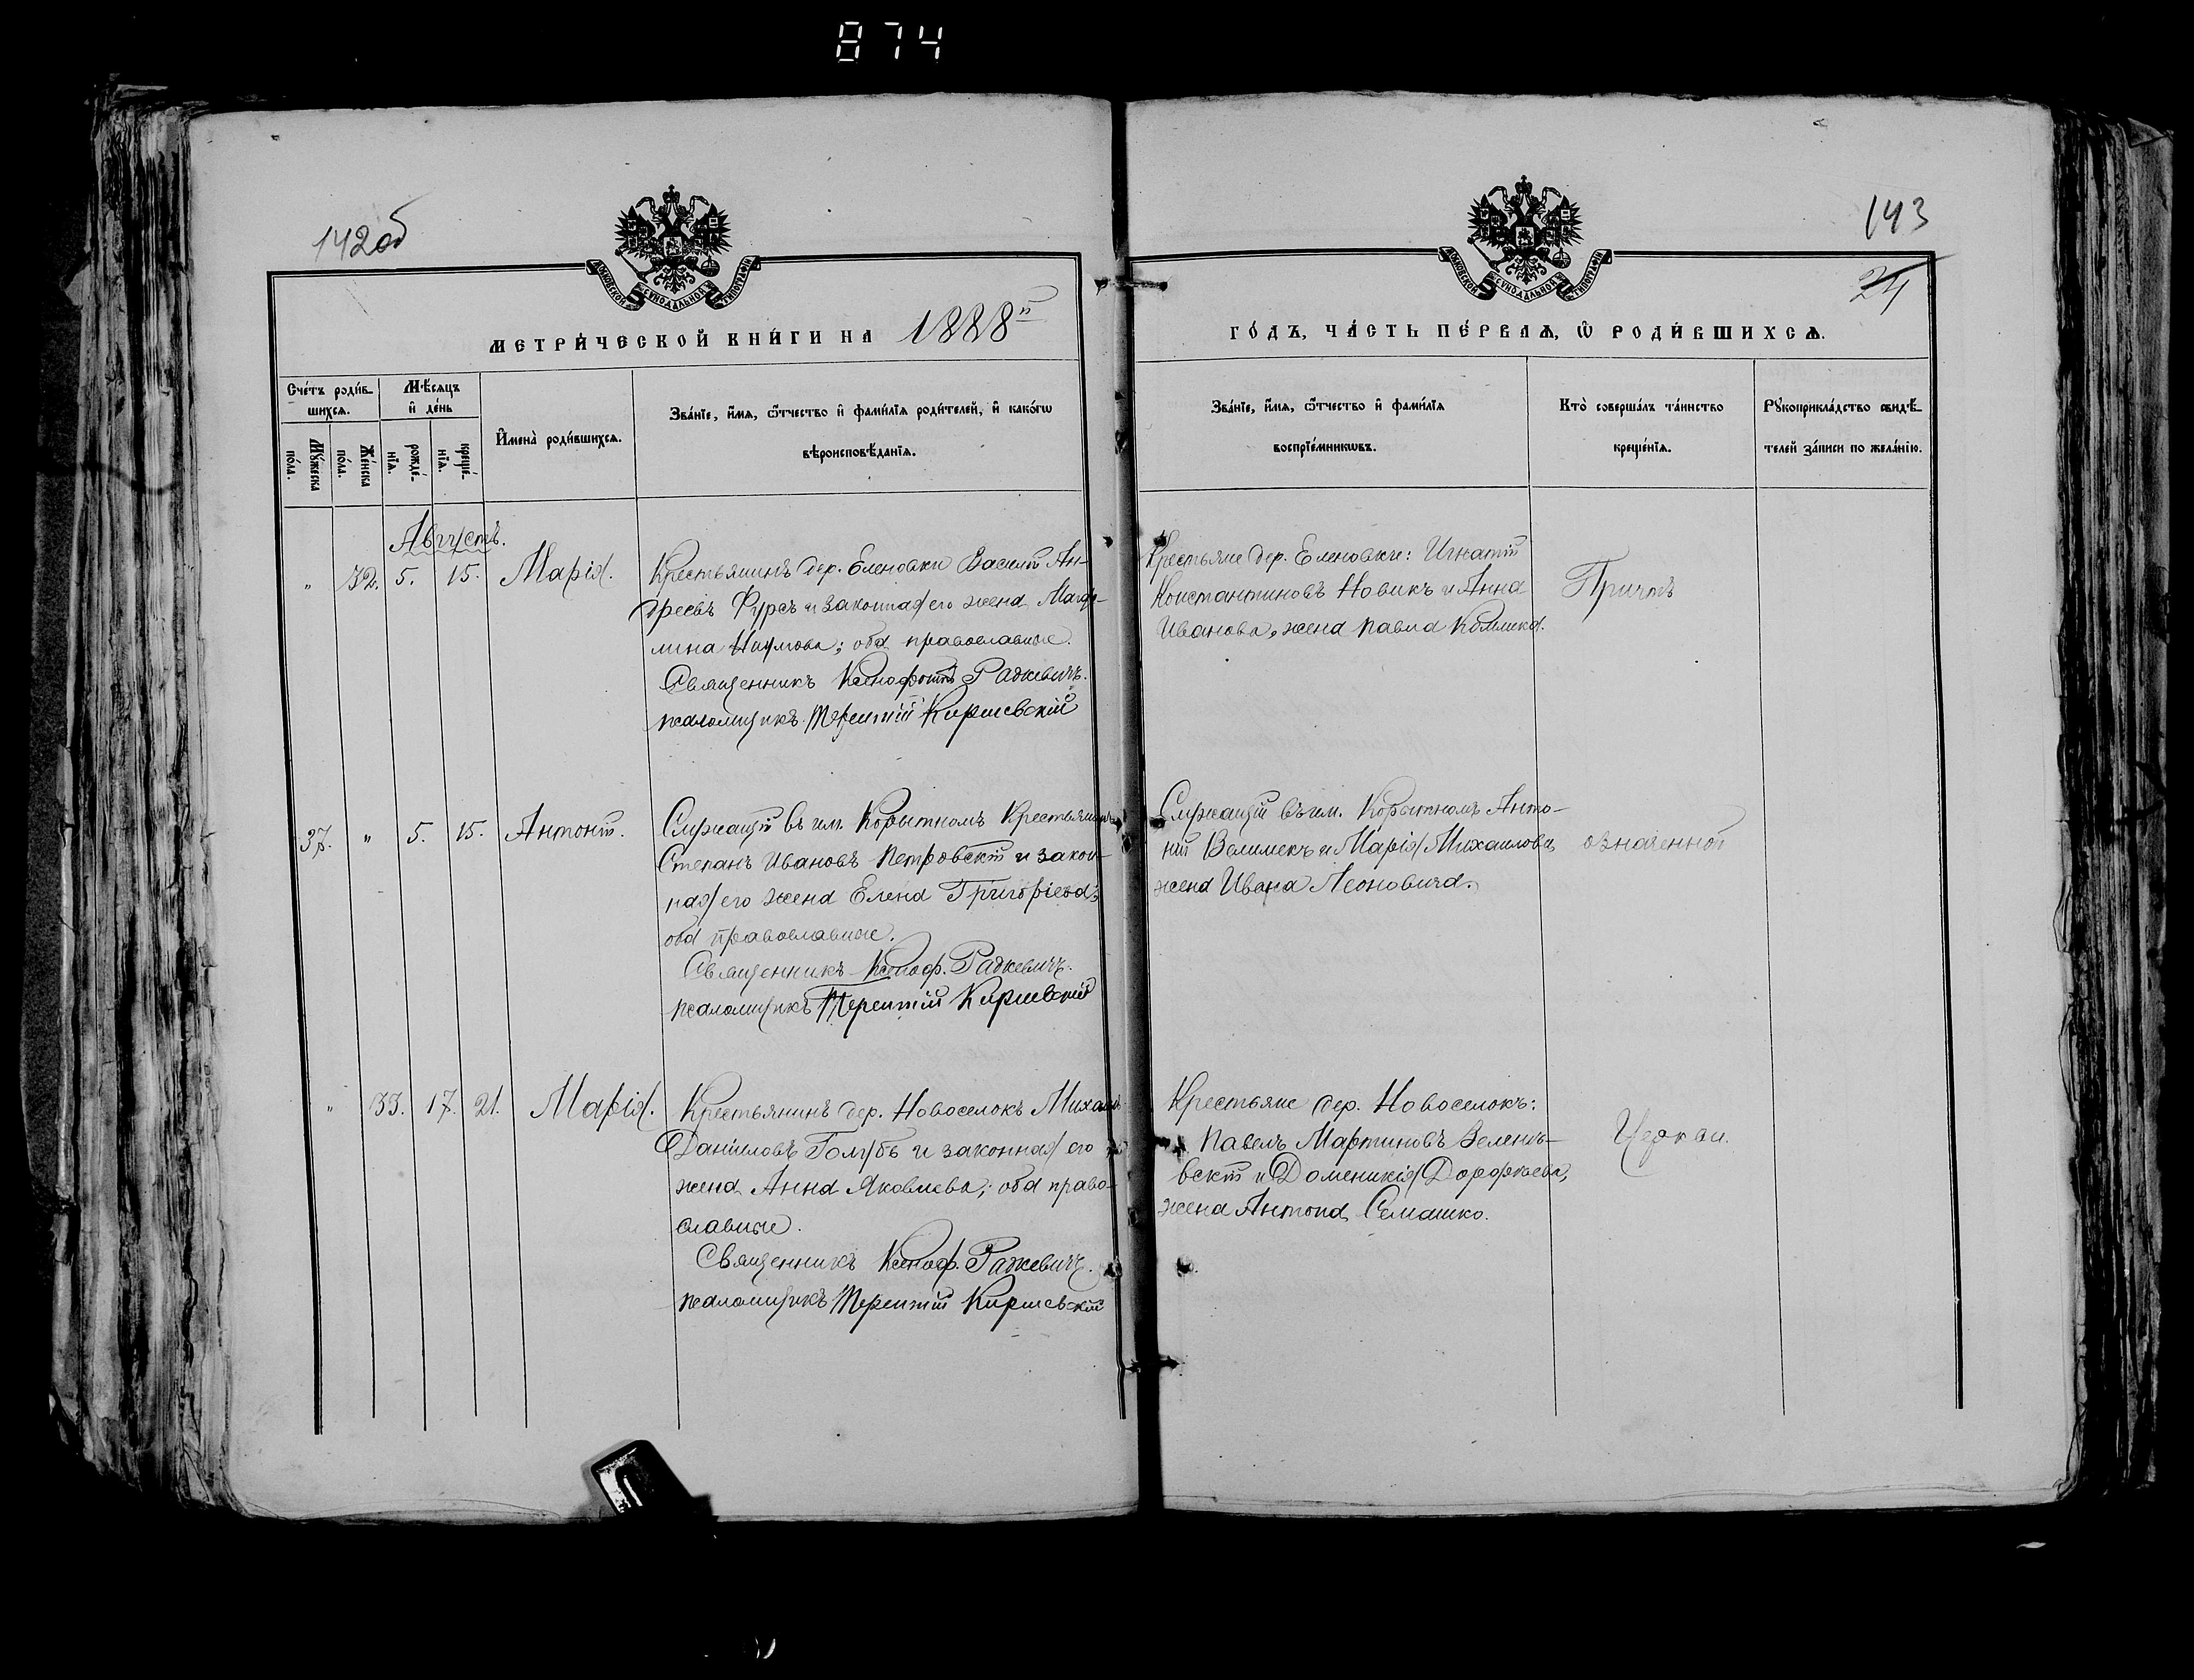 874
142об
143
24
МОСКОВСКОЙ СѴНОДАЛЬНОЙ ТИПОГРАФІИ
МОСКОВСКОЙ СѴНОДАЛЬНОЙ ТИПОГРАФІИ
МЕТРИ́ЧЕСКОЙ КНИ́ГИ НА 1888й
ГО́ДЪ, ЧА́СТЬ ПЕ́РВАѦ, Ѿ РОДИ́ВШИХСѦ.
Сче́тъ роди́в-
шихсѧ.
Мѣ́сѧцъ
и҆ де́нь
Мꙋ́жеска
по́ла.
Же́нска
по́ла.
рожде́-
нїѧ.
креще́-
нїѧ.
И҆мена̀ роди́вшихсѧ.
Зва́нїе, и҆́мѧ, ѻ҆́тчество и҆ фами́лїѧ роди́телей, и҆ како́гѡ
вѣроисповѣ́данїѧ.
Зва́нїе, и҆́мѧ, ѻ҆́тчество и҆ фами́лїѧ
воспрїе́мникѡвъ.
Кто̀ соверша́лъ та́инство
креще́нїѧ.
Рꙋкоприкла́дство свидѣ́-
телей за́писи по жела́нїю.
Августъ.
" 32. 5. 15. Марія.
Крестьянинъ дер. Еленовки Василій Ан-
дреевъ Фурсъ и законная его жена Магда-
лина Наумова; оба православные.
Священникъ Ксенофонтъ Радкевичъ.
псаломщикъ Терентій Киршевскій
Крестьяне дер. Еленовки: Игнатій
Константиновъ Новикъ и Анна
Иванова, жена Павла
Причтъ
37. " 5. 15. Антоній.
Служащій въ им. Корытномъ Крестьянинъ
Степанъ Ивановъ Петровскій и закон-
ная его жена Елена Григорьева;
оба православные.
Священникъ Ксеноф. Радкевичъ.
псаломщикъ Терентій Киршевскій
Служащій въ им. Корытномъ Анто-
ній Велимекъ и Марія Михаилова
жена Ивана Леоновича.
означенной
" 33. 17. 21. Марія.
Крестьянинъ дер. Новоселокъ Михаилъ
Даніиловъ Голубъ и законная его
жена Анна Яковлева; оба право-
славные.
Священникъ Ксеноф. Радкевичъ.
псаломщикъ Терентій Киршевскій
Крестьяне дер. Новоселокъ:
Павелъ Мартиновъ Зеленъ-
вскій и Доменикія Дорофѣева,
жена Антона Семашко.
Церкви.